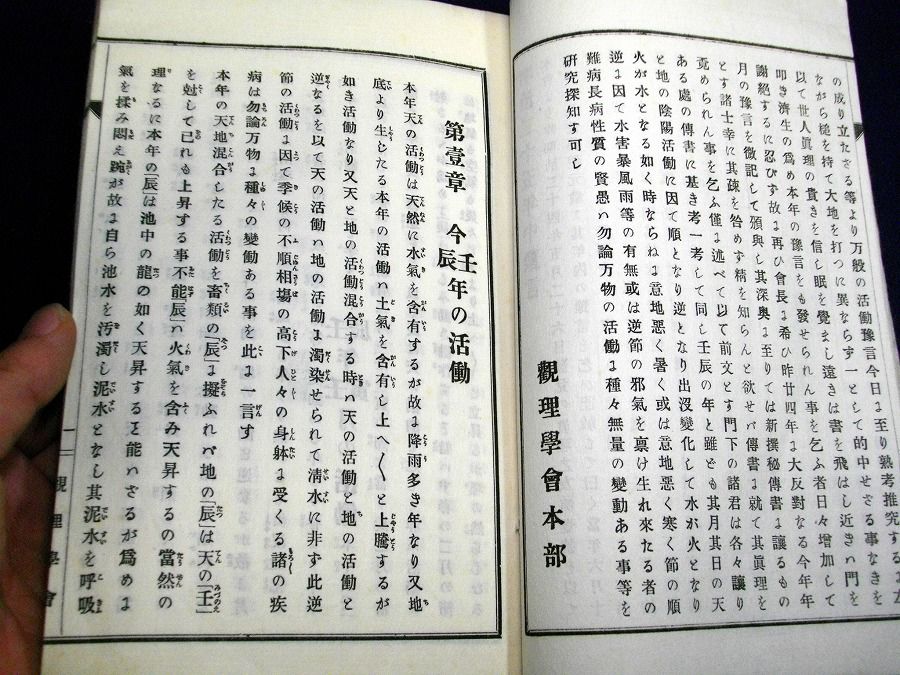 の成り立たざる等より万般の活動豫言今日ま至り熟考推究するま左
ながら槌を持て大地を打つに異ならず一として的中せざる事なきを
以て世人眞理の貴きを信し眠を覺まし遠きは書を飛はし近きハ門を
叩き濟生の爲め本年の豫言をも發せられん事を乞ふ者日々増加して
謝絶するに忍びず故ま再ひ會長ま希ひ昨廿四年ま大反對なる今年年
月の豫言を微記して頒與し其深奥ま至りては新撰秘傳書ま讓るもの
とす諸士幸に其疎を咎めず精を知らんと欲せバ傳書ま就て其眞理を
竟められん事を乞ふ僅ま述べて以て前文とす門下の諸君は各々讓り
ある處の傳書に基き考一考して同し壬辰の年と雖ども其月其日の天
と地の陰陽活動に因て順となり逆となり出没變化して水が火となり
火が水となる如く時ならねま意地悪く暑く或は意地悪く寒く節の順
逆ま因て水害暴風雨等の有無或は逆節の邪氣を稟け生れ來たる者の
難病長病性質の賢愚ハ勿論万物の活動ま種々無量の變動ある事等を
研究探知す可し
觀理學會本部
第壹章 今壬辰年の活働
本年天の活働は天然に水氣を含有するが故ま降雨多き年なり又地
底より生じたる本年の活働ハ土氣を含有し上へ〱と上騰するが
如き活働なり又天と地の活働混合する時ハ天の活働と地の活働と
逆なるを以て天の活働ハ地の活働ま濁染せられて淸水に非ず此逆
節の活働ま因て季候の不順相塲の高下人々の身躰ま受くる諸の疾
病は勿論万物ま種々の變働ある事を此ま一言す
本年の天地混合したる活働を畜類の「辰」ま擬ふれバ地の辰は天の「壬」
を尅して已れも上昇する事不能辰ハ火氣を含み天昇するの當然の
理なるに本年の「辰」は池中の龍の如く天昇すること能ハざるが爲めま
氣を揉み悶え踠が故ま自ら池水を汚濁し泥水となし其泥水を呼吸
觀理學會